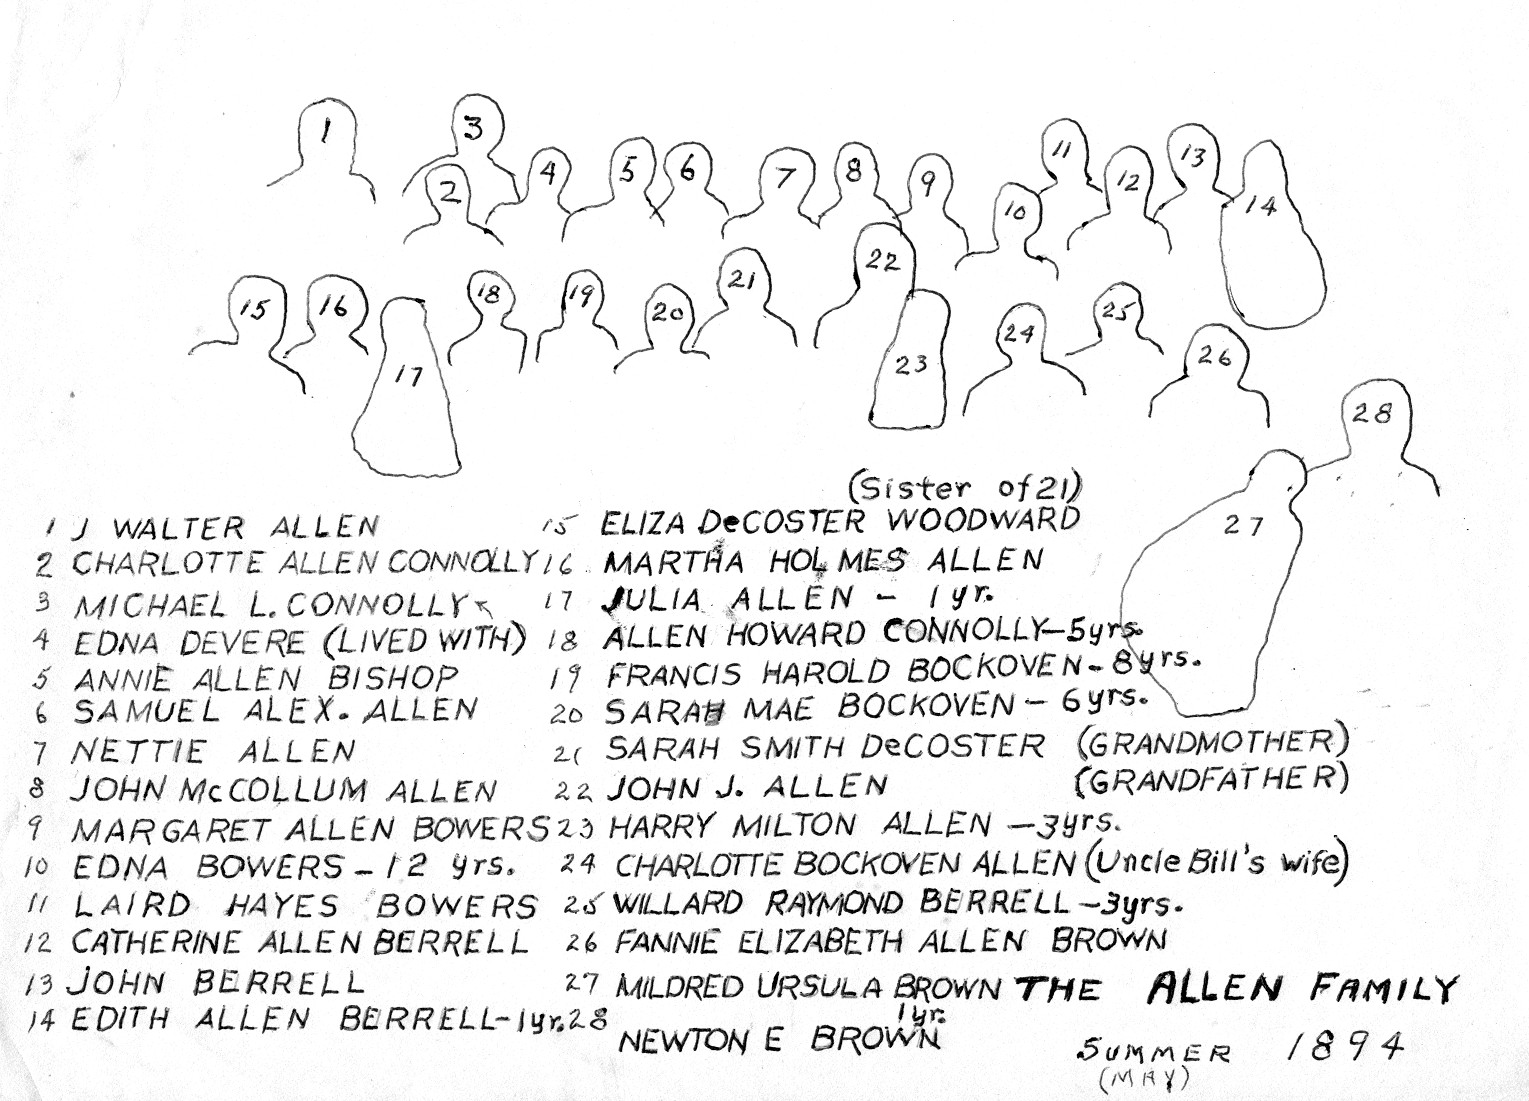 1
3
2
4
5
6
7
8
9
10
11
12
13
14
15
16
17
18
19
20
21
22
23
24
25
26
27
28
(Sister of 21)
1 J WALTER ALLEN
2 CHARLOTTE ALLEN CONNOLLY
3 MICHAEL L. CONNOLLY
4 EDNA DEVERE (LIVED WITH)
5 ANNIE ALLEN BISHOP
6 SAMUEL ALEX. ALLEN
7 NETTIE ALLEN
8 JOHN McCOLLUM ALLEN
9 MARGARET ALLEN BOWERS
10 EDNA BOWERS - 12 yrs.
11 LAIRD HAYES BOWERS
12 CATHERINE ALLEN BERRELL
13 JOHN BERRELL
14 EDITH ALLEN BERRELL - 1yr.
15 ELIZA DeCOSTER WOODWARD
16 MARTHA HOLMES ALLEN
17 JULIA ALLEN - 1yr.
18 ALLEN HOWARD CONNOLLY - 5yrs.
19 FRANCIS HAROLD BOCKOVEN - 8yrs.
20 SARAH MAE BOCKOVEN - 6yrs.
21 SARAH SMITH DeCOSTER (GRANDMOTHER)
22 JOHN J. ALLEN (GRANDFATHER)
23 HARRY MILTON ALLEN - 3yrs.
24 CHARLOTTE BOCKOVEN ALLEN (Uncle Bill's wife)
25 WILLARD RAYMOND BERRELL - 3yrs.
26 FANNIE ELIZABETH ALLEN BROWN
27 MILDRED URSULA BROWN
1yr.
28 NEWTON E BROWN
THE ALLEN FAMILY
SUMMER 1894
(MAY)